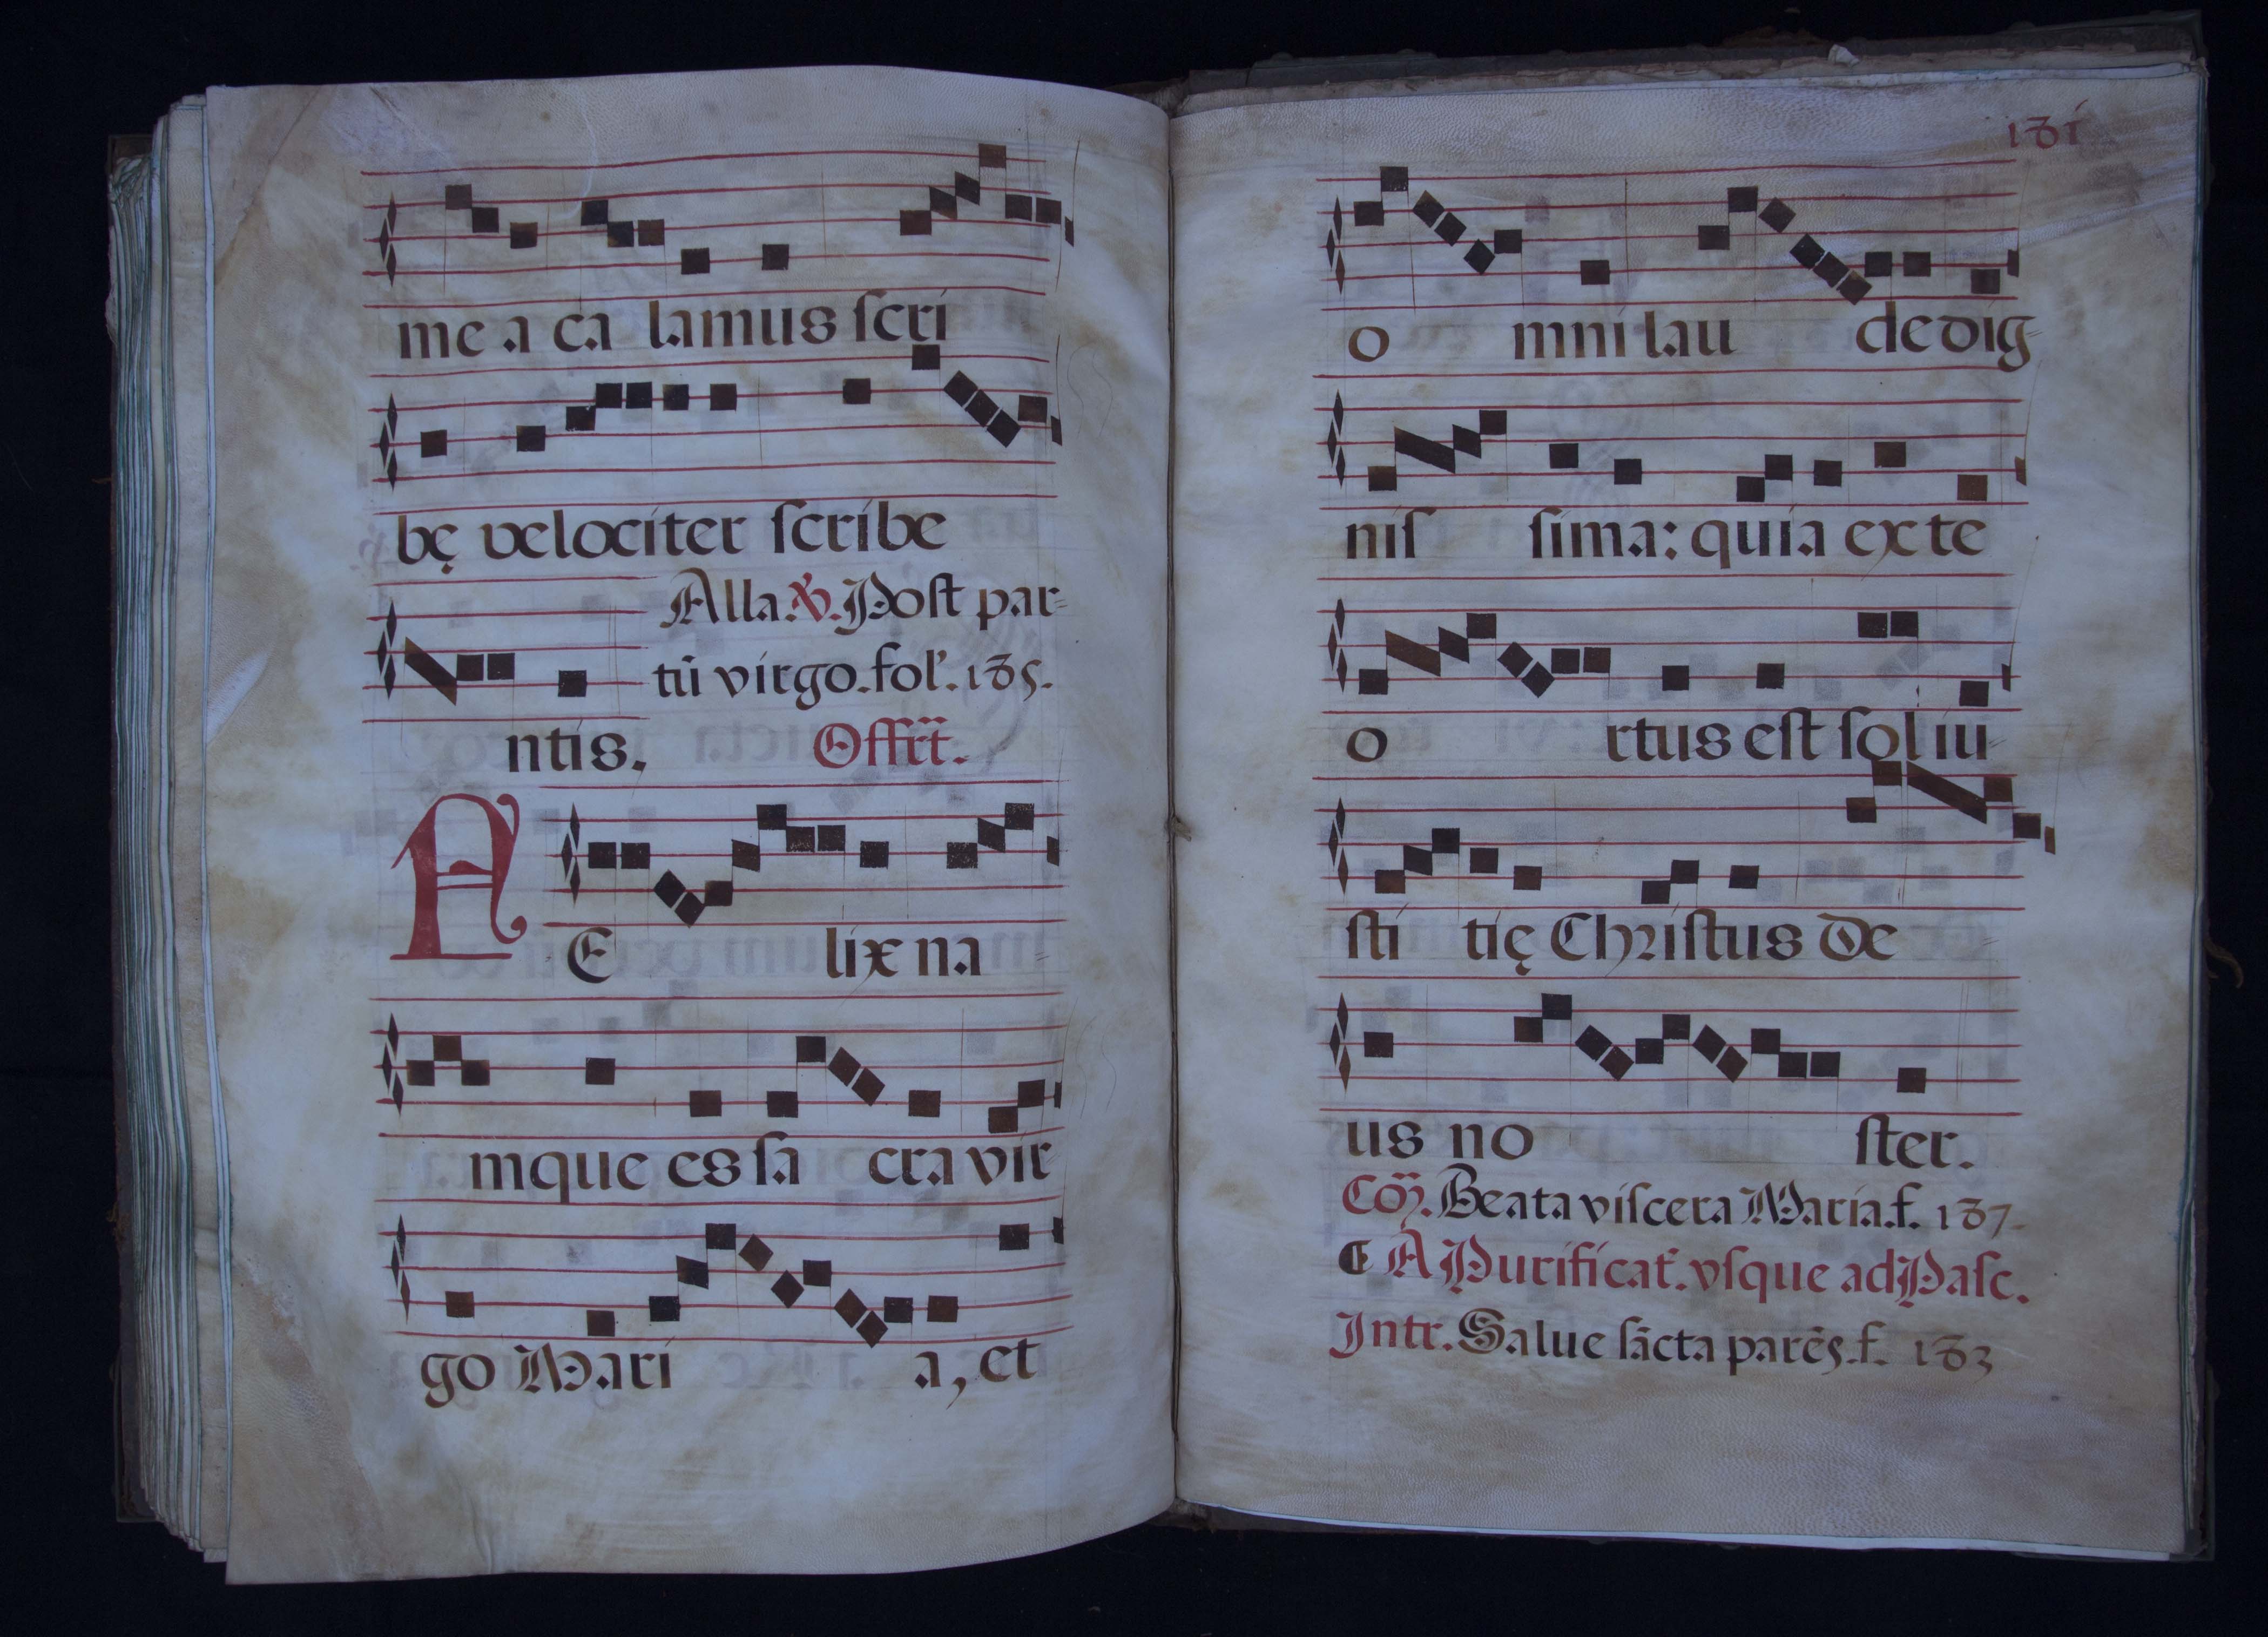 me a ca lamus ſcri
bę velociter ſcribe
Alla. ℣. Poſt par=
tū virgo. fol'. 185.
ntis. Offr̄t.
F E lix na=
mque es ſa cra vir
go Mari a, et
181
o mni lau de dig=
niſ ſima: quia ex te
o rtus eſt ſol iu=
ſti tię Chriſtus De
us no ſter.
Beata viſcera Maria. f. 187.
A Purificat. vſque ad Paſc.
Intr. Salue ſācta parēs. f. 183